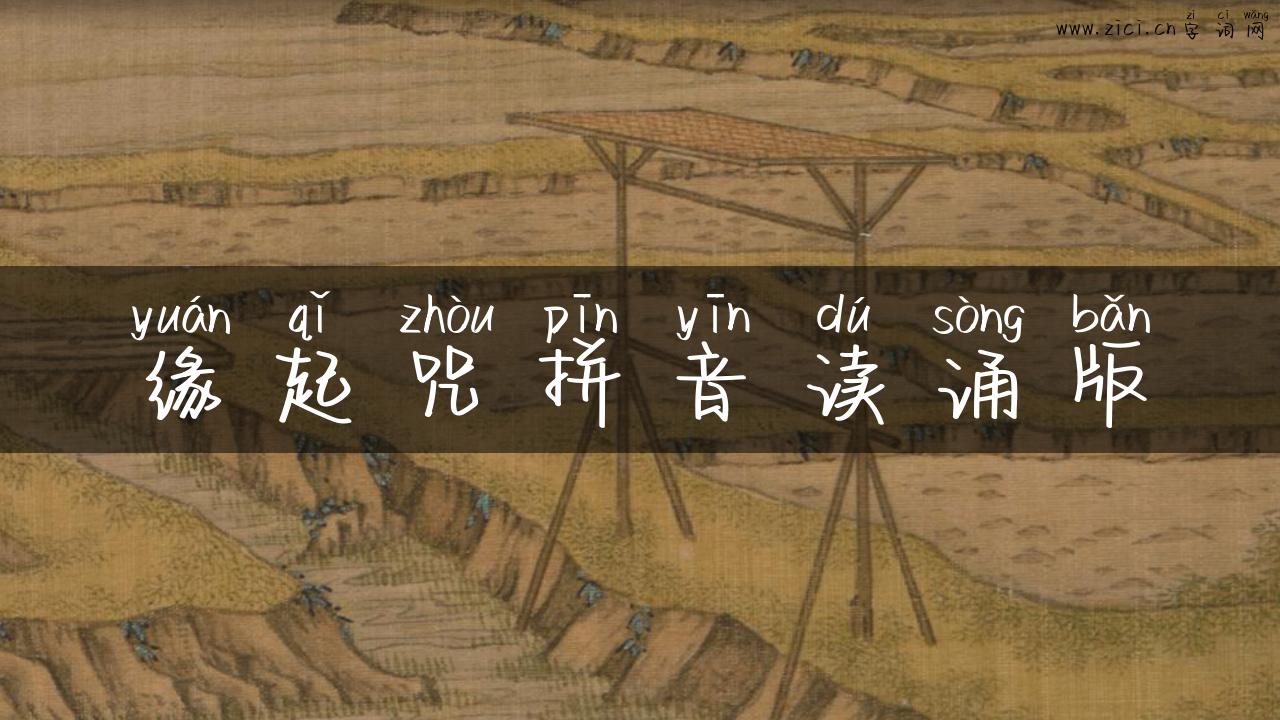 zì cí wǎng
www.zici.cn 字 词 网
yuán qǐ zhòu pīn yīn dú sòng bǎn
缘 起 咒 拼 音 读 诵 版